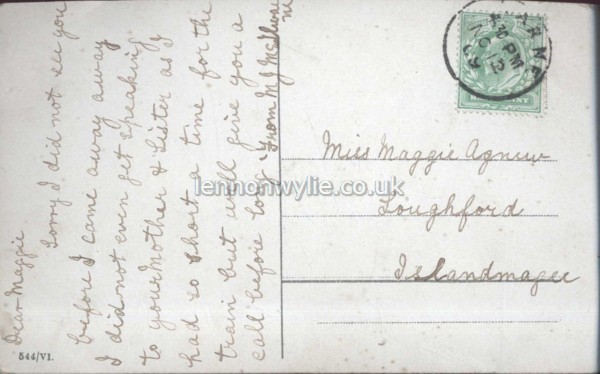 Dear Maggie
Sorry I did not see you
before I came away away
I did not even get speaking
to your Mother & Sister as I
had so short a time for the
train but will give you a
call before long. From M J
Miss Maggie Agnew
Loughford
Islandmagee
544/VI.
4.30 PM
12
09
lennonwylie.co.uk